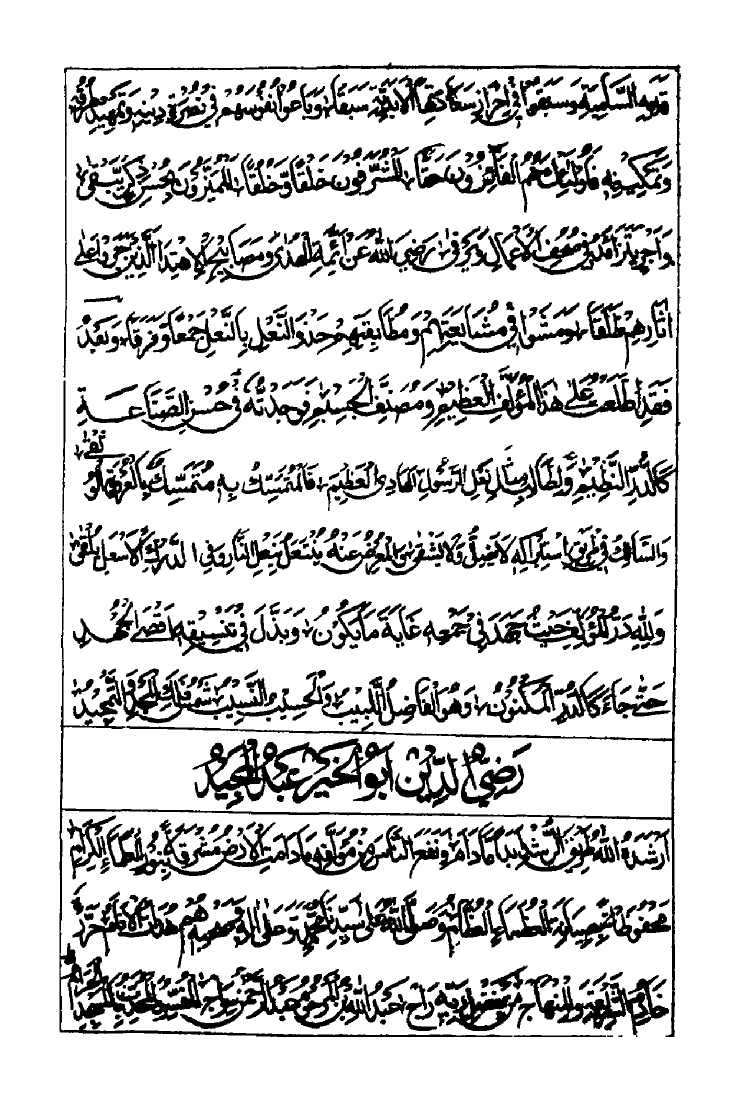 قدمه السامية وسبقوا في احراز سعادتها الابدية سبقا، وباعوا نفوسهم في نصرة دينه وتمهيد طرقه
وتمكينه فاولئك هم الفائزون حقا، المشرفون خلقا وخلقا، المميزون بحسن ذكر يبقى
واجر يتزايد في صحف الاعمال ويرقى، رضي الله عن ائمة الهدى ومصابيح الاهتدا الذين جروا على
اثارهم طلقا، ومشوا في مشايعتهم ومطابقتهم حذو النعل بالنعل جمعا وفرقا، وبعد
فقد اطلعت على هذا المؤلف العظيم ومصنف الجسيم فوجدته في حسن الصناعة
كالدر النظيم نعل الرسول الهادي العظيم، فالمتمسك به متمسك بالعروة الوثقى
والسالك في طريق لا يضل ولا يشقى، والمعرض عنه ينتعل بنعل النار وفي الدرك الاسفل يلقى
ولله در المؤلف حيث جهد في جمعه غاية ما يكون، وبذل في تنسيقه اقصى الجهد
حتى جاء كالدر المكنون، وهو الفاضل اللبيب، والحسيب النسيب، شمس فلك المجد والتمجيد
رضي الدين ابو الخير عبد المجيد
ارشده الله طريق الرشد ابدا ما دام ونفع الناس من مؤلفه ما دامت الارض مشرقة بنور العلماء الكرام
محفوظة العلماء العظام، وصلى الله على سيدنا محمد وعلى اله وصحبه هم هداة الانام حرره
خادم الشريعة والمنهاج عبد الله بن المرحوم عبد الرحمن سراج الحنفي بالمسجد الحرام